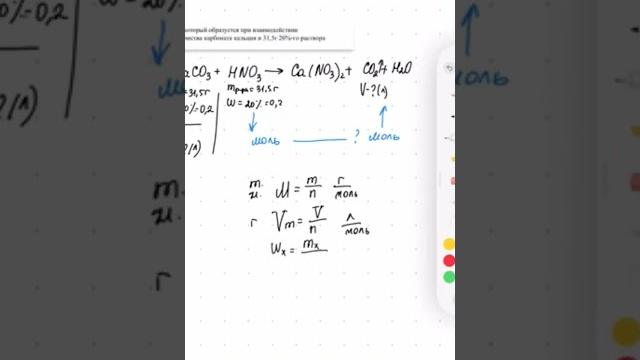 который образуется при взаимодействии
карбоната кальция и 31,5г 20%-го раствора
aCO3 + HNO3 → Ca(NO3)2 + CO2↑ + H2O
mр-ра = 31,5г
V-?(л)
W = 20% = 0,2
моль ? моль
M = m/n г/моль
г Vm = V/n л/моль
Wx = mx